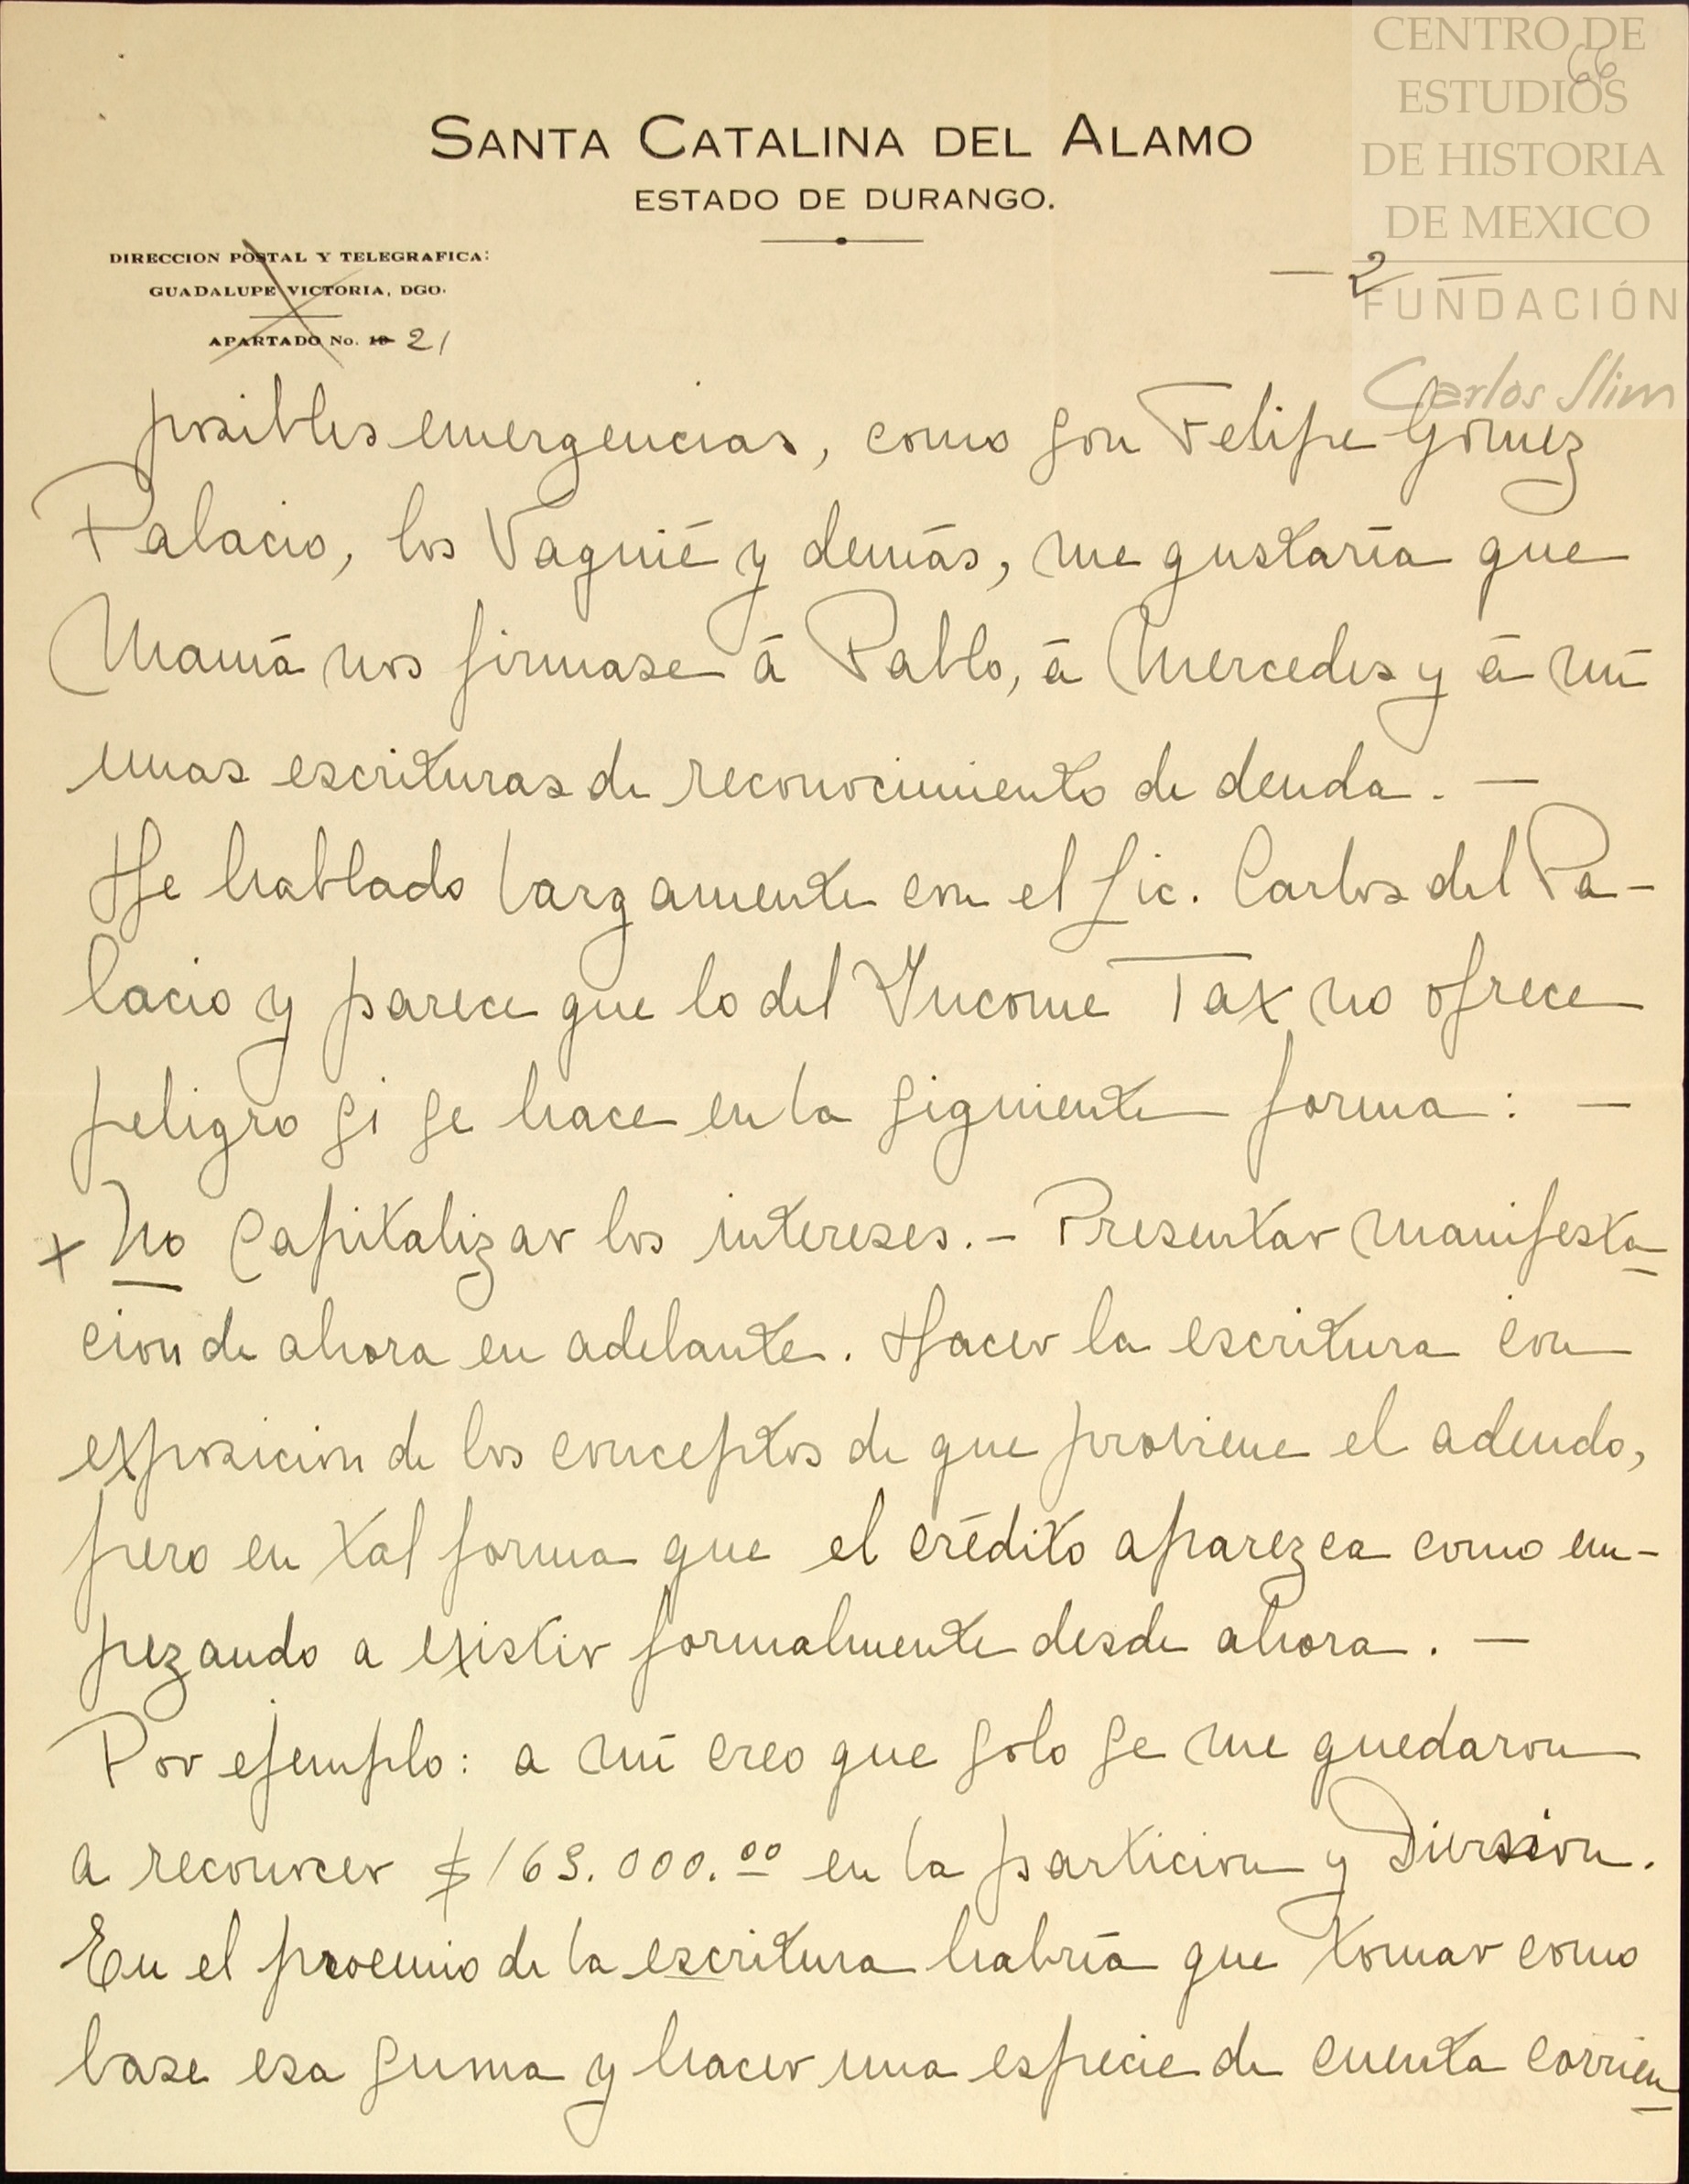 CENTRO DE
66
ESTUDIOS
DE HISTORIA
DE MEXICO
FUNDACIÓN
Carlos Slim
SANTA CATALINA DEL ALAMO
ESTADO DE DURANGO.
DIRECCION POSTAL Y TELEGRAFICA:
GUADALUPE VICTORIA, DGO.
APARTADO No. 10 21
— 2 —
posibles emergencias, como son Felipe Gómez
Palacio, los Vagnié y demás, me gustaría que
Mamá nos firmase á Pablo, á Mercedes y á mí
unas escrituras de reconocimiento de deuda. —
He hablado largamente con el Lic. Carlos del Pa-
lacio y parece que lo del Income Tax no ofrece
peligro si se hace en la siguiente forma: —
x No capitalizar los intereses. - Presentar manifesta-
cion de ahora en adelante. Hacer la escritura con
exposicion de los conceptos de que proviene el adeudo,
pero en tal forma que el crédito aparezca como em-
pezando a existir formalmente desde ahora. —
Por ejemplo: a mí creo que solo se me quedaron
a reconocer $ 169.000.00 en la particion y Division.
En el proemio de la escritura habría que tomar como
base esa suma y hacer una especie de cuenta corrien-